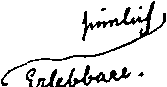 sinnlich
Erlebbare.